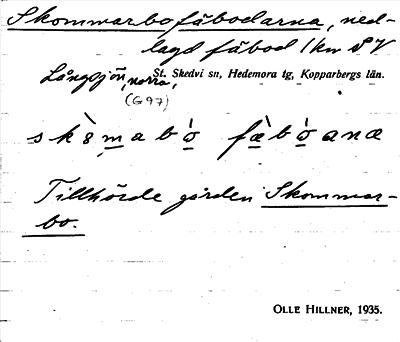 Skommarbofäbodarna, ned-
lagd fäbod 1 km SV
Långsjön, norra, St. Skedvi sn, Hedemora tg, Kopparbergs län.
(G97)
skòmabó fæ̀bóanæ
Tillhörde gården Skommar-
bo.
OLLE HILLNER, 1935.